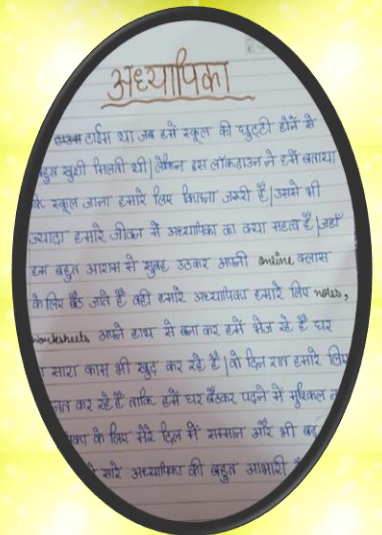 अध्यापिका
टाईम था जब हमें स्कूल की छुट्टी होने से
बहुत खुशी मिलती थी| लेकिन इस लॉकडाउन ने हमें बताया
कि स्कूल जाना हमारे लिए कितना जरुरी है| उससे भी
ज्यादा हमारे जीवन में अध्यापिका का क्या महत्व है| जहाँ
हम बहुत आराम से सुबह उठकर अपनी online क्लास
के लिए बैठ जाते है वही हमारे अध्यापिका हमारे लिए notes,
worksheets अपने हाथ से बना कर हमें भेज रहे है घर
सारा काम भी खुद कर रहे है| वो दिन रात हमारे लिए
कर रहे है ताकि हमें घर बैठकर पढ़ने में मुश्किल
के लिए मेरे दिल में सम्मान और भी
सारे अध्यापिका की बहुत आभारी